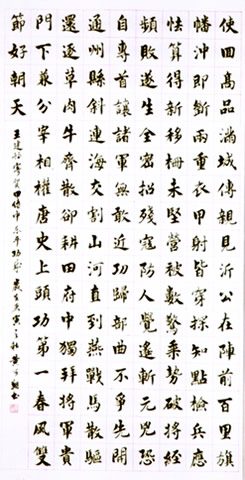 使回高品滿城傳親見沂公在陣前百里旗
幡沖即斷兩重衣甲射皆穿探知點檢兵應
怯算得新移柵未堅營被數驚乘勢破將經
頻敗遂生全密招殘寇防人覺遙斬元兇恐
自專首讓諸軍無敢近功歸部曲不爭先開
通州縣斜連海交割山河直到燕戰馬散驅
還逐草肉牛齊散卻耕田府中獨拜將軍貴
門下兼分宰相權唐史上頭功第一春風雙
節好朝天
王建詩寄賀田侍中東平功成 庚寅之秋